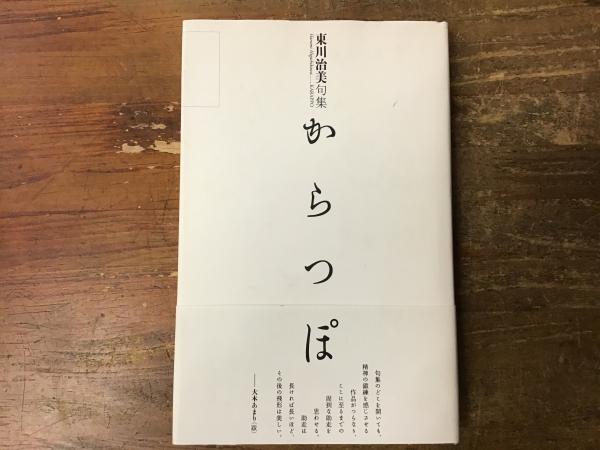 東川治美句集
KARAPPO
からつぽ
句集のどこを開いても、
精神の鍛錬を感じさせる
作品がつらなり、
ここに至るまでの
な助走を
思わせる。
助走は
長ければ長いほど、
その後の飛形は美しい。
——大木あまり(跋)